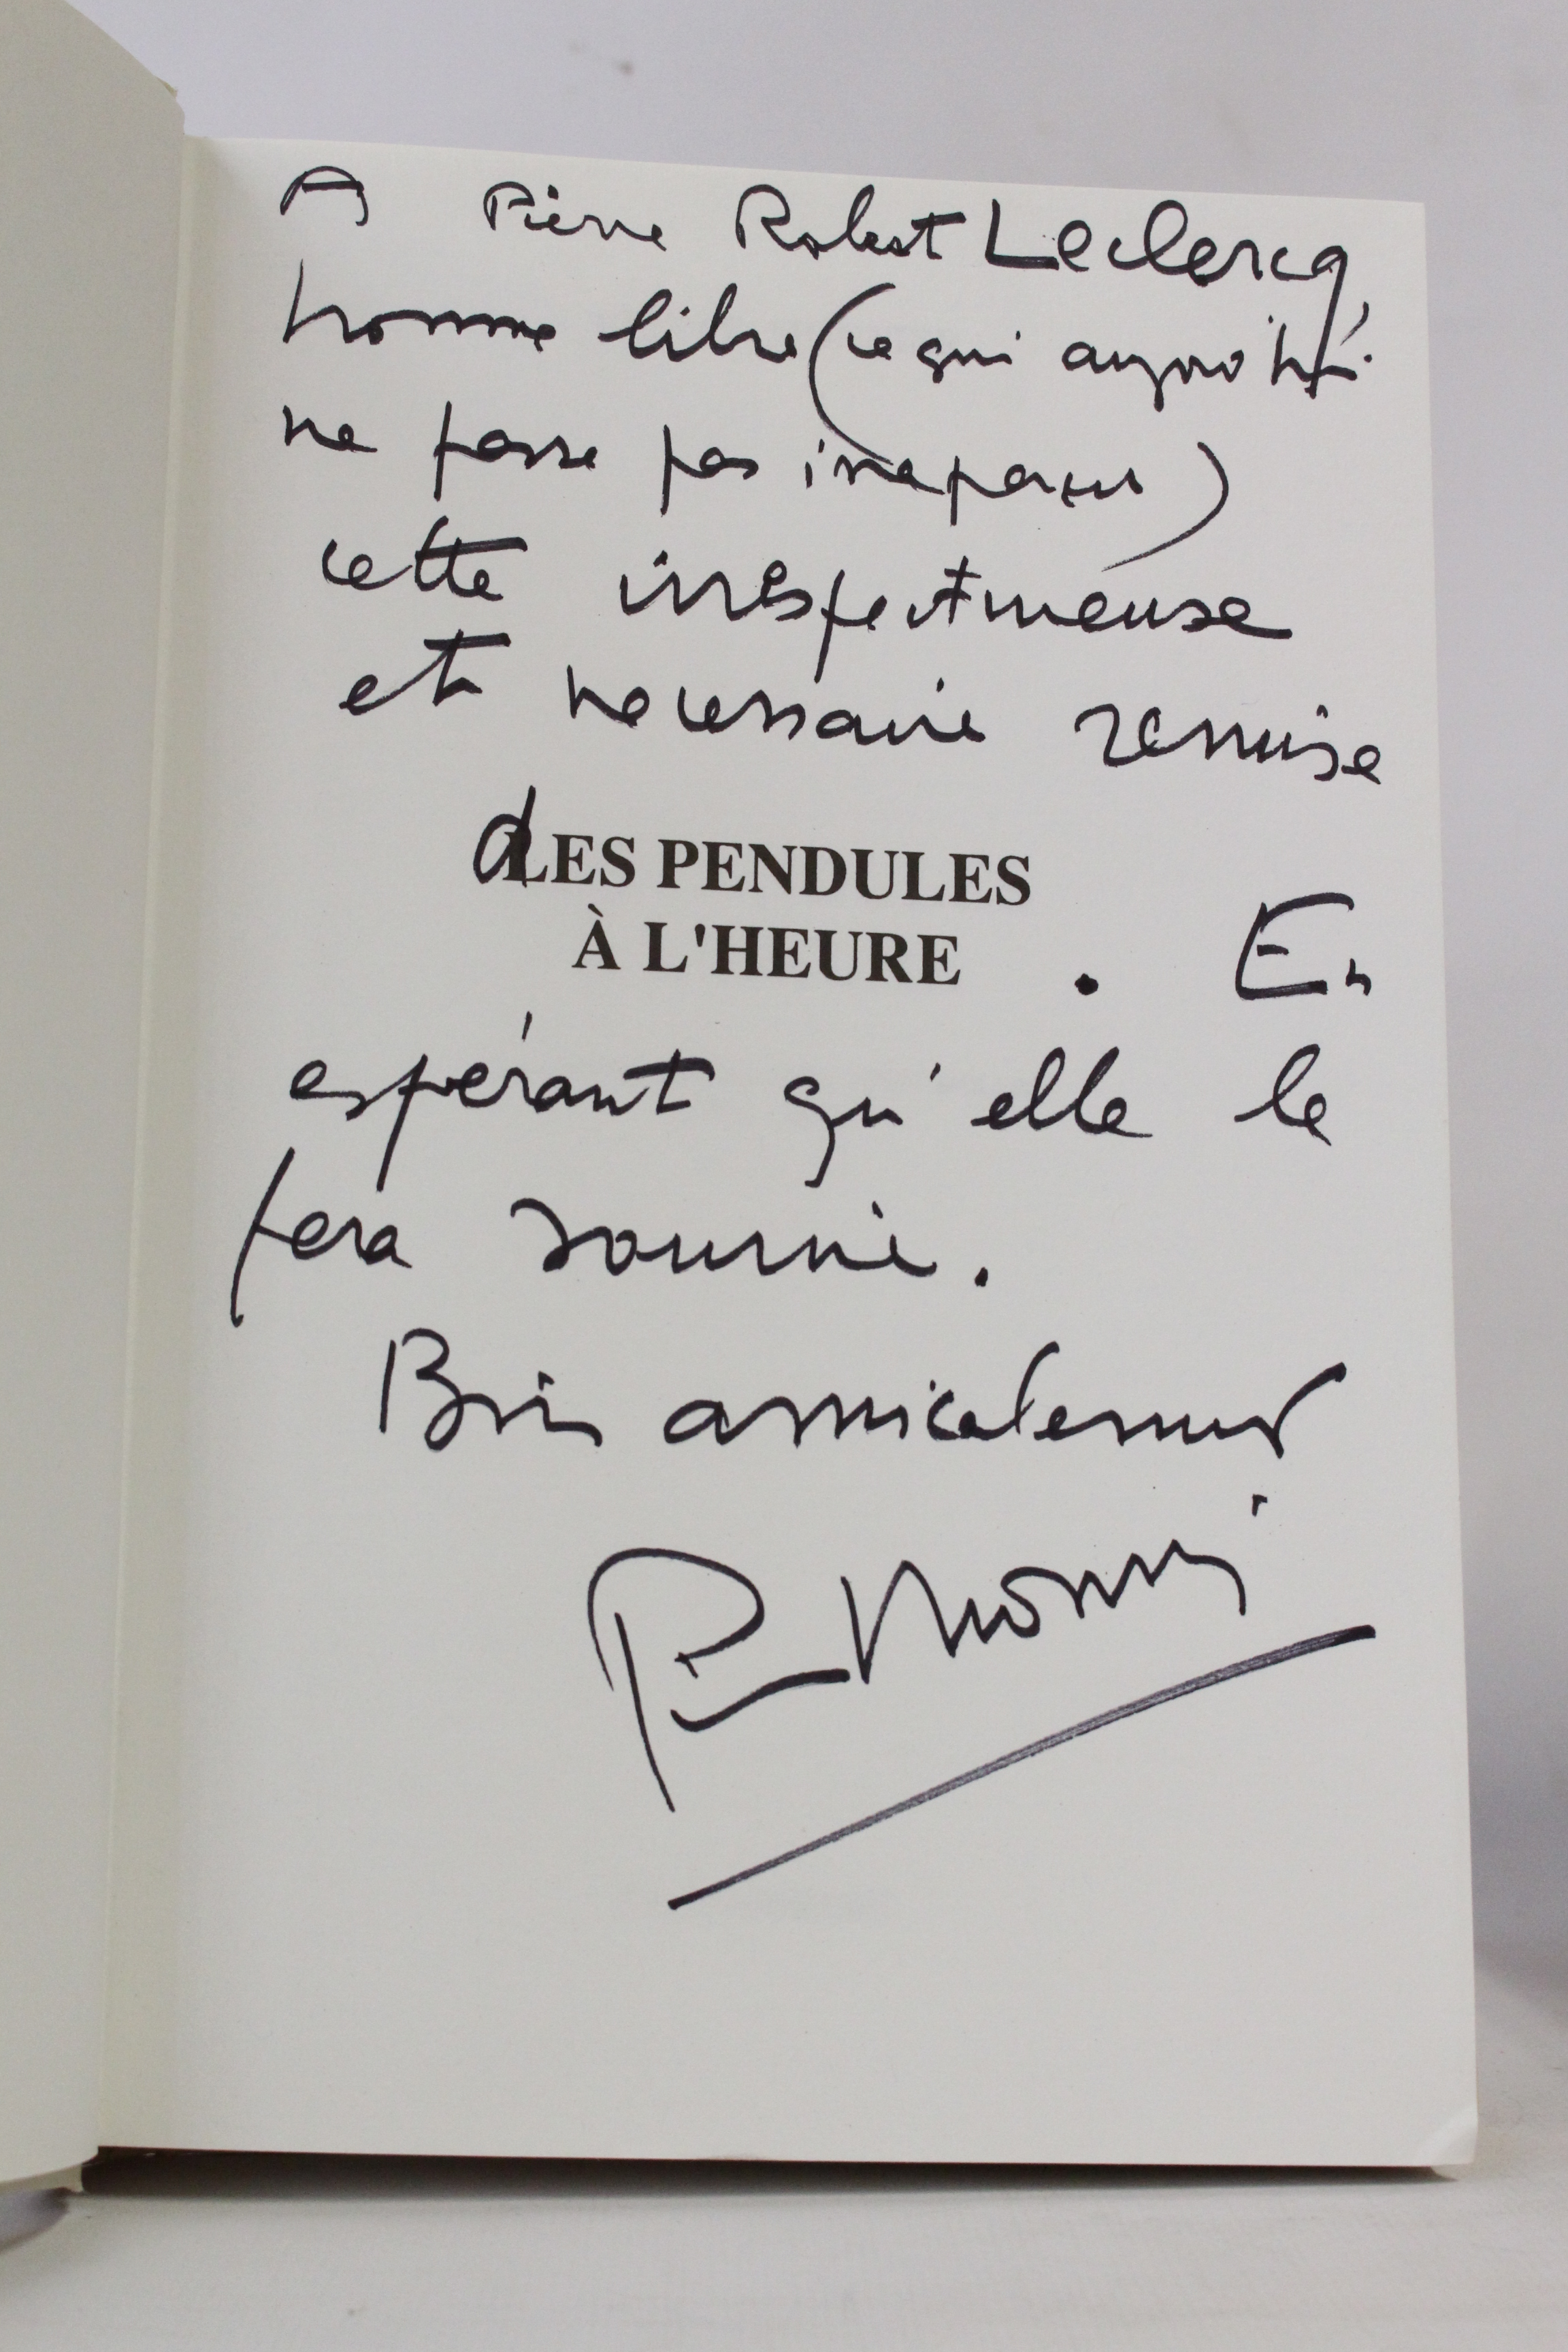 A Pierre Robert Leclercq,
homme libre (ce qui aujourd'hui
ne passe pas inaperçu)
cette irrespectueuse
et necessaire remise
dES PENDULES
À L'HEURE . En
espérant qu'elle le
fera sourire.
Bien amicalement